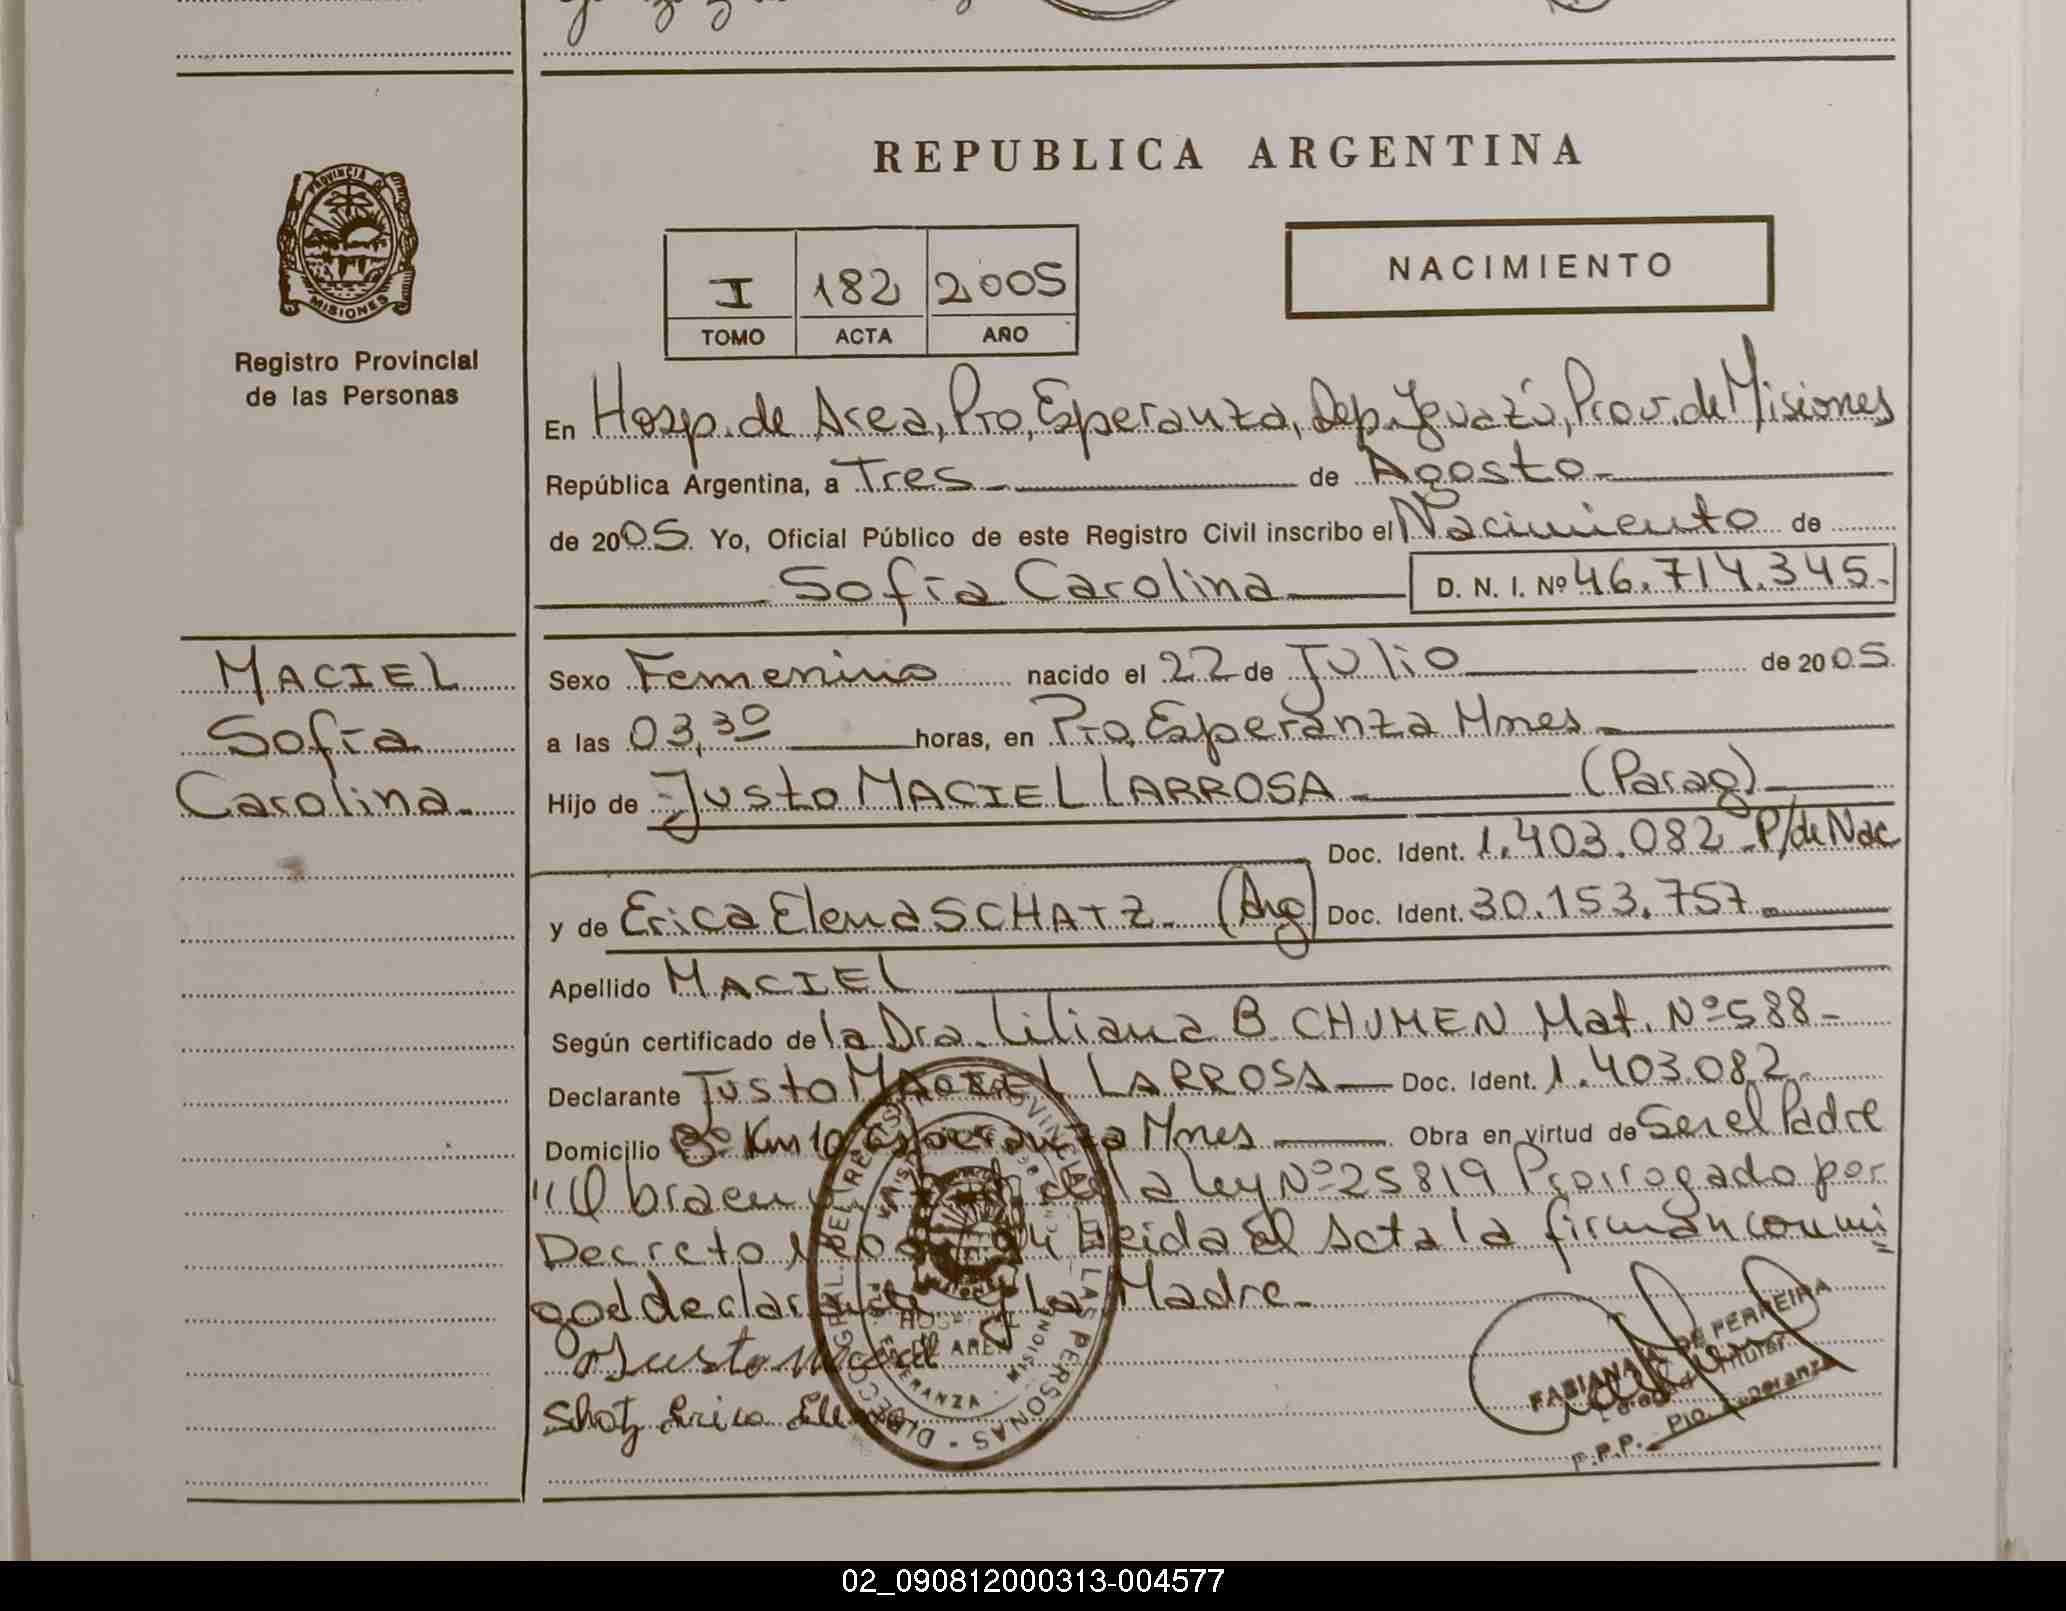 REPUBLICA ARGENTINA
PROVINCIA DE
MISIONES
Registro Provincial
de las Personas
I 182 2005
TOMO ACTA AÑO
NACIMIENTO
En Hosp. de Area, Pto, Esperanza, Dep. Iguazú, Prov. de Misiones
República Argentina, a Tres de Agosto
de 2005. Yo, Oficial Público de este Registro Civil inscribo el Nacimiento de
Sofía Carolina D. N. I. Nº 46.714.345.
MACIEL
Sofía
Carolina
Sexo Femenino nacido el 22 de Julio de 2005.
a las 03,30 horas, en Pto, Esperanza Mnes
Hijo de Justo MACIEL LARROSA (Parag)
Doc. Ident. 1.403.082 P/de Nac
y de Erica Elena SCHATZ (Arg) Doc. Ident. 30.153.757
Apellido MACIEL
Según certificado de la Dra. Liliana B. CHUMEN Mat. Nº 588
Declarante Justo MACIEL LARROSA Doc. Ident. 1.403.082
Domicilio Bº Km 10 Esperanza Mnes Obra en virtud de Ser el Padre
"Obra en de la ley Nº 25819 Prorrogado por
Decreto leida el acta la firman conmi
go el declarante y la Madre.
Justo Maciel
Shatz Erica Elena
DIRECC. GRAL. DEL REGISTRO PROVINCIAL DE LAS PERSONAS
HOSPITAL
DE AREA
ESPERANZA - MISIONES
FABIANA DE FERREIRA
Titular
P.P.P. Pto. Esperanza
02_090812000313-004577